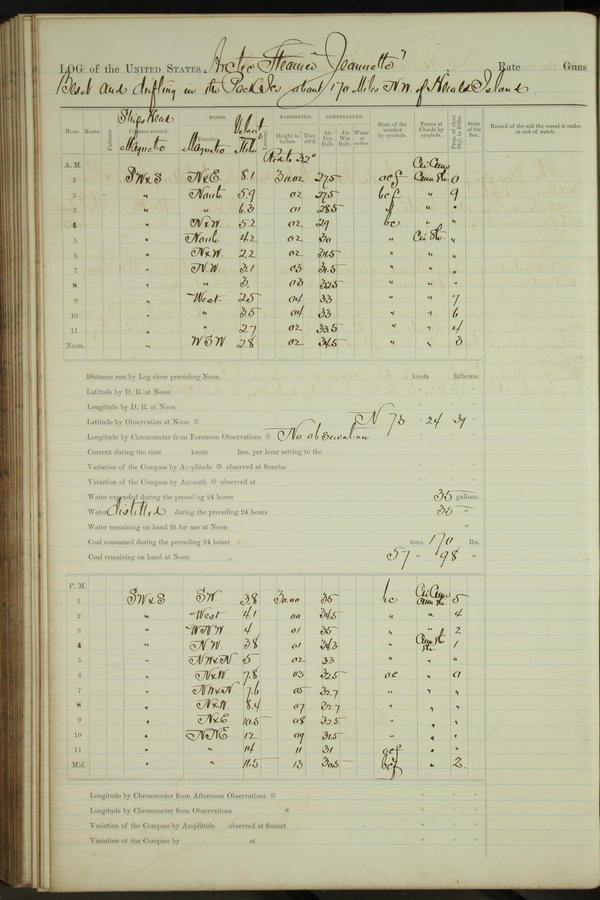 LOG of the UNITED STATES Arctic Steamer "Jeannette" Rate Guns
Beset and drifting in the Pack Ice about 170 Miles N.W. of Herald Island
Hour. Knots. Fathoms. Ship's Head Courses steered. Magnetic WINDS. Direction. Magnetic Velocity Miles Leeway. BAROMETER. Height in inches. Ther. att'd. TEMPERATURE. Air Dry Bulb. Air Wet Bulb. Water at surface. State of the weather by symbols. Forms of Clouds by symbols. Prop. of clear Sky, in 10ths. State of the Sea. Record of the sail the vessel is under at end of watch.
A. M. Red to 32° Cir Cum
1 SW x S N x E 8.1 30.02 27.5 ocf Cum Str. 0
2 " North 5.9 02 27.5 bcf " 9
3 " " 6.3 01 28.5 " " "
4 " N x W 5.2 02 29 bc " "
5 " North 4.2 02 30 " Cir Str. "
6 " N x W 2.2 02 31.5 " " "
7 " N.W. 3.1 03 31.5 " " "
8 " " 3. 03 32.5 " " "
9 " West 2.5 04 33 " " 7
10 " " 3.5 04 33 " " 6
11 " " 2.7 02 33.5 " " 4
Noon. " WSW 2.8 02 34.5 " " 3
Distance run by Log since preceding Noon knots fathoms.
Latitude by D. R. at Noon
Longitude by D. R. at Noon
Latitude by Observation at Noon N 73 24 39
Longitude by Chronometer from Forenoon Observations No observation
Current during the time knots fms. per hour setting to the
Variation of the Compass by Amplitude observed at Sunrise
Variation of the Compass by Azimuth observed at
Water expended during the preceding 24 hours 35 gallons.
Water distilled during the preceding 24 hours 35 "
Water remaining on hand fit for use at Noon "
Coal consumed during the preceding 24 hours tons. 170 lbs.
Coal remaining on hand at Noon 57 " 98 "
P. M. Cir Cum
1 SW x S SW 3.8 30.00 35 bc Cum Str. 5
2 " West 4.1 00 34.5 " " 4
3 " WNW 4 01 35 " " 2
4 " N.W. 38 01 34.3 " Cum Str. 1
5 " NW x N 5 02 33 " " "
6 " N x W 7.8 03 32.5 oc. " 0
7 " NW x N 7.6 05 32.7 " " "
8 " N x W 8.4 07 32.7 " " "
9 " N x E 10.5 08 32.5 " " "
10 " NNE 12 09 31.5 " " "
11 " " 14 11 31 ocf " "
Mid. " " 11.5 13 30.5 bcf " 2
Longitude by Chronometer from Afternoon Observations
Longitude by Chronometer from Observations
Variation of the Compass by Amplitude observed at Sunset
Variation of the Compass by at